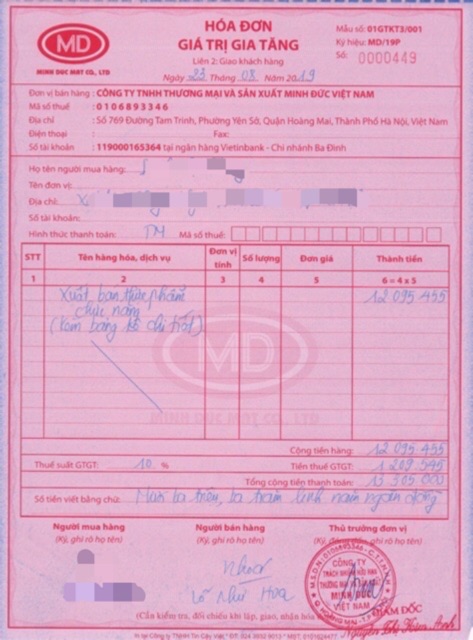 MD
MINH DUC MAT CO., LTD
HÓA ĐƠN
GIÁ TRỊ GIA TĂNG
Liên 2: Giao khách hàng
Ngày 23 Tháng 08 Năm 2019
Mẫu số: 01GTKT3/001
Ký hiệu: MD/19P
Số: 0000449
Đơn vị bán hàng: CÔNG TY TNHH THƯƠNG MẠI VÀ SẢN XUẤT MINH ĐỨC VIỆT NAM
Mã số thuế : 0106893346
Địa chỉ : Số 769 Đường Tam Trinh, Phường Yên Sở, Quận Hoàng Mai, Thành Phố Hà Nội, Việt Nam
Điện thoại : Fax:
Số tài khoản : 119000165364 tại ngân hàng Vietinbank - Chi nhánh Ba Đình
Họ tên người mua hàng:
Tên đơn vị:
Địa chỉ:
Số tài khoản:
Hình thức thanh toán: TM Mã số thuế:
STT Tên hàng hóa, dịch vụ Đơn vị tính Số lượng Đơn giá Thành tiền
1 2 3 4 5 6 = 4 x 5
Xuất bán thực phẩm 12 095 455
chức năng
(kèm bảng kê chi tiết)
MD
MINH DUC MAT CO., LTD
Cộng tiền hàng: 12 095 455
Thuế suất GTGT: 10 % Tiền thuế GTGT: 1 209 545
Tổng cộng tiền thanh toán: 13 305 000
Số tiền viết bằng chữ: Mười ba triệu, ba trăm linh năm ngàn đồng
Người mua hàng Người bán hàng Thủ trưởng đơn vị
(Ký, ghi rõ họ tên) (Ký, ghi rõ họ tên) (Ký, đóng dấu, ghi rõ họ tên)
M.S.D.N: 0106893346-C.T.T.N.H.H
CÔNG TY
TRÁCH NHIỆM HỮU HẠN
THƯƠNG MẠI VÀ SẢN XUẤT
MINH ĐỨC
VIỆT NAM
Q. HOÀNG MAI - TP. HÀ NỘI
Như Hoa
GIÁM ĐỐC
Nguyễn Thị
(Cần kiểm tra, đối chiếu khi lập, giao, nhận hóa đơn)